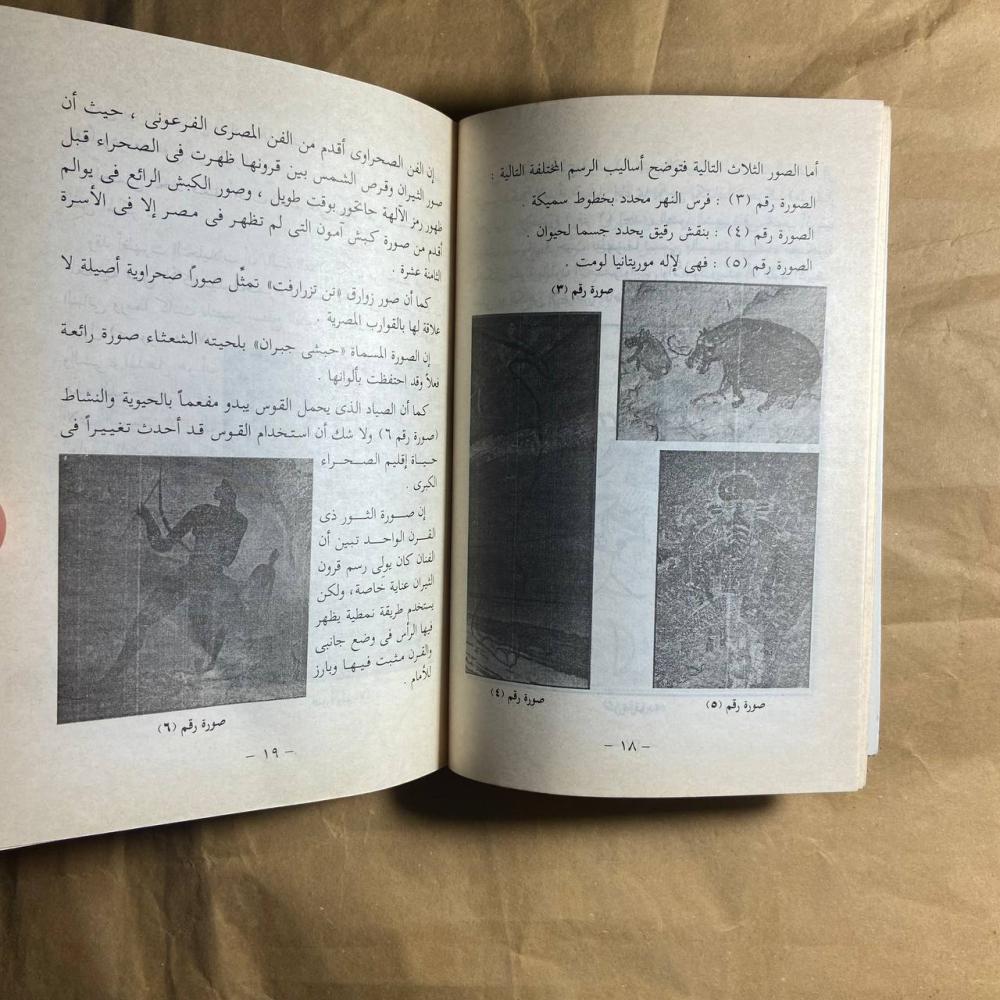 أما الصور الثلاث التالية فتوضح أساليب الرسم المختلفة التالية :
الصورة رقم (٣) : فرس النهر محدد بخطوط سميكة .
الصورة رقم (٤) : بنقش رقيق يحدد جسما لحيوان .
الصورة رقم (٥) : فهى لإله موريتانيا لومت .
صورة رقم (٣)
صورة رقم (٤)
صورة رقم (٥)
- ١٨ -
إن الفن الصحراوى أقدم من الفن المصرى الفرعونى ، حيث أن
صور الثيران وقرص الشمس بين قرونها ظهرت فى الصحراء قبل
ظهور رمز الآلهة حاتحور بوقت طويل ، وصور الكبش الرائع فى يوالم
أقدم من صورة كبش آمون التى لم تظهر فى مصر إلا فى الأسرة
الثامنة عشرة .
كما أن صور زوارق «تن تزرارفت» تمثّل صوراً صحراوية أصيلة لا
علاقة لها بالقوارب المصرية .
إن الصورة المسماة «حبشى جبران» بلحيته الشعثاء صورة رائعة
فعلاً وقد احتفظت بألوانها .
كما أن الصياد الذى يحمل القوس يبدو مفعماً بالحيوية والنشاط
(صورة رقم ٦) ولا شك أن استخدام القوس قد أحدث تغييراً فى
حياة إقليم الصحراء
الكبرى .
إن صورة الثور ذى
القرن الواحد تبين أن
الفنان كان يولى رسم قرون
الثيران عناية خاصة ، ولكن
يستخدم طريقة نمطية يظهر
فيها الرأس فى وضع جانبى
والقرن مثبت فيها وبارز
للأمام .
صورة رقم (٦)
- ١٩ -